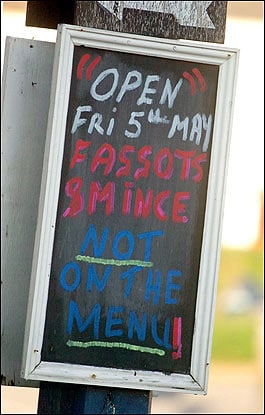 "OPEN"
FRI 5th MAY
FASSOTS
& MINCE
NOT
ON THE
MENU!